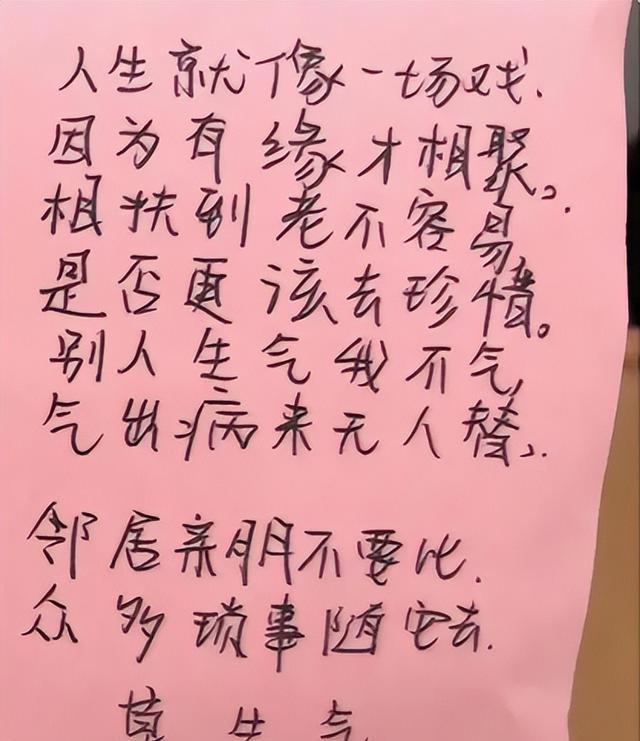 人生就像一场戏.
因为有缘才相聚、.
相扶到老不容易,
是否更该去珍惜。
别人生气我不气,
气出病来无人替、.
邻居亲朋不要比.
众多琐事随它去.
莫生气